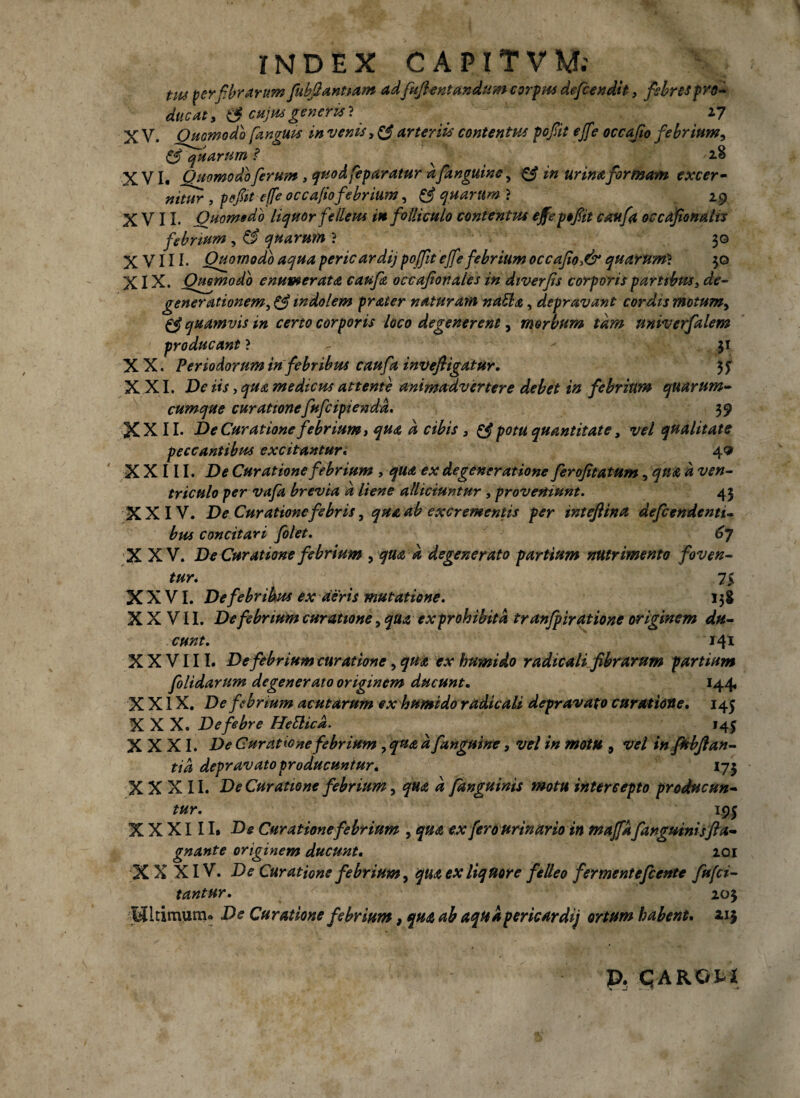 INDEX CAPITVM.
tus per fibrarum substantiam ad sustentandum corpus descendit, febres pro-
ducat, & cujus generis? 27
XV. Quomodo sanguis in venis, & arteriis contentus possit esse occasio febrium,
& quarum? 28
XVI. Quomodo serum, quod separatur à sanguine, & in urinæ formam excer-
nitur, possit esse occasio febrium, & quarum? 29
XVII. Quomodo liquor felleus in folliculo contentus esse possit causa occasionalis
febrium, & quarum? 30
XVIII. Quomodo aqua pericardij possit esse febrium occasio, & quarum? 30
XIX. Quomodo enumeratæ causæ occasionales in diversis corporis partibus, de-
generationem, & indolem præter naturam nactæ, depravant cordis motum,
& quamvis in certo corporis loco degenerent, morbum tàm universalem
producant? 31
XX. Periodorum in febribus causa investigatur. 35
XXI. De iis, quæ medicus attentè animadvertere debet in febrium quarum-
cumque curatione suscipiendâ. 39
XXII. De Curatione febrium, quæ à cibis, & potu quantitate, vel qualitate
peccantibus excitantur. 40
XXIII. De Curatione febrium, quæ ex degeneratione serositatum, quæ à ven-
triculo per vasa brevia à liene alliciuntur, proveniunt. 43
XXIV. De Curatione febris, quæ ab excrementis per intestina descendenti-
bus concitari solet. 67
XXV. De Curatione febrium, quæ à degenerato partium nutrimento foven-
tur. 75
XXVI. De febribus ex aëris mutatione. 138
XXVII. De febrium curatione, quæ ex prohibitâ transpiratione originem du-
cunt. 141
XXVIII. De febrium curatione, quæ ex humido radicali fibrarum partium
solidarum degenerato originem ducunt. 144
XXIX. De febrium acutarum ex humido radicali depravato curatione. 145
XXX. De febre Hecticâ. 145
XXXI. De Curatione febrium, quæ à sanguine, vel in motu, vel in substan-
tiâ depravato producuntur. 173
XXXII. De Curatione febrium, quæ à sanguinis motu intercepto producun-
tur. 195
XXXIII. De Curatione febrium, quæ ex sero urinario in massâ sanguinis sta-
gnante originem ducunt. 201
XXXIV. De Curatione febrium, quæ ex liquore felleo fermentescente susci-
tantur. 203
Ultimum. De Curatione febrium, quæ ab aquâ pericardij ortum habent. 213
D. CAROLI